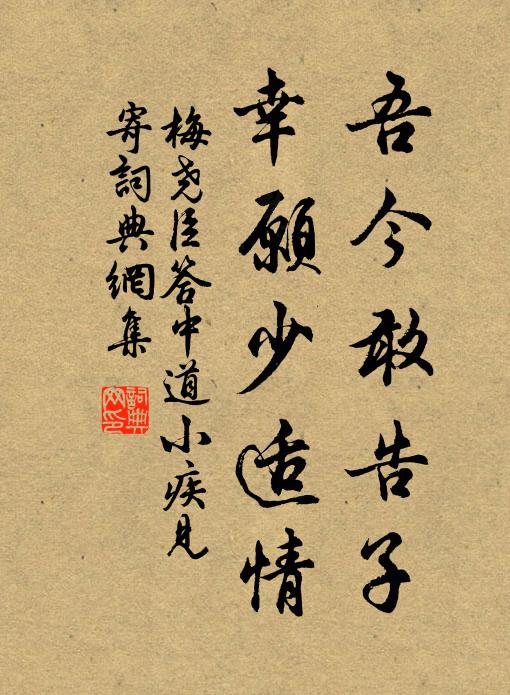 吾今敢告子
幸願少适情
梅堯臣答中道小疾見
寄詞典網集
詞典
网印